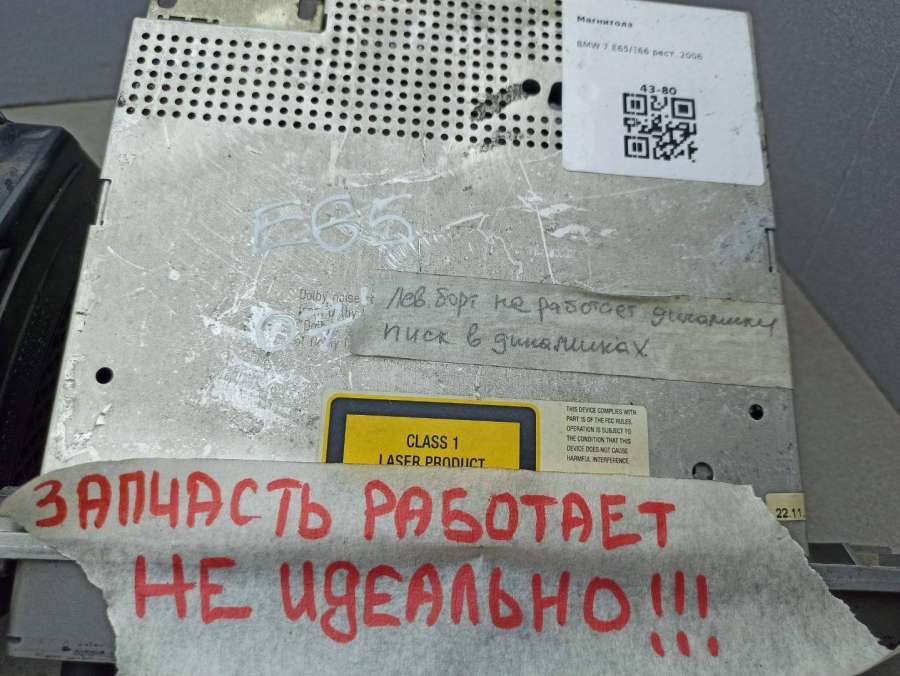 Магнитола
BMW 7 E65/E66 рест. 2006
43-80
E65
Dolby noise
Лев. борт не работает динамики
писк в динамиках
CLASS 1
LASER PRODUCT
THIS DEVICE COMPLIES WITH
PART 15 OF THE FCC RULES.
OPERATION IS SUBJECT TO
THE CONDITION THAT THIS
DEVICE DOES NOT CAUSE
HARMFUL INTERFERENCE.
22.11.
ЗАПЧАСТЬ РАБОТАЕТ
НЕ ИДЕАЛЬНО!!!